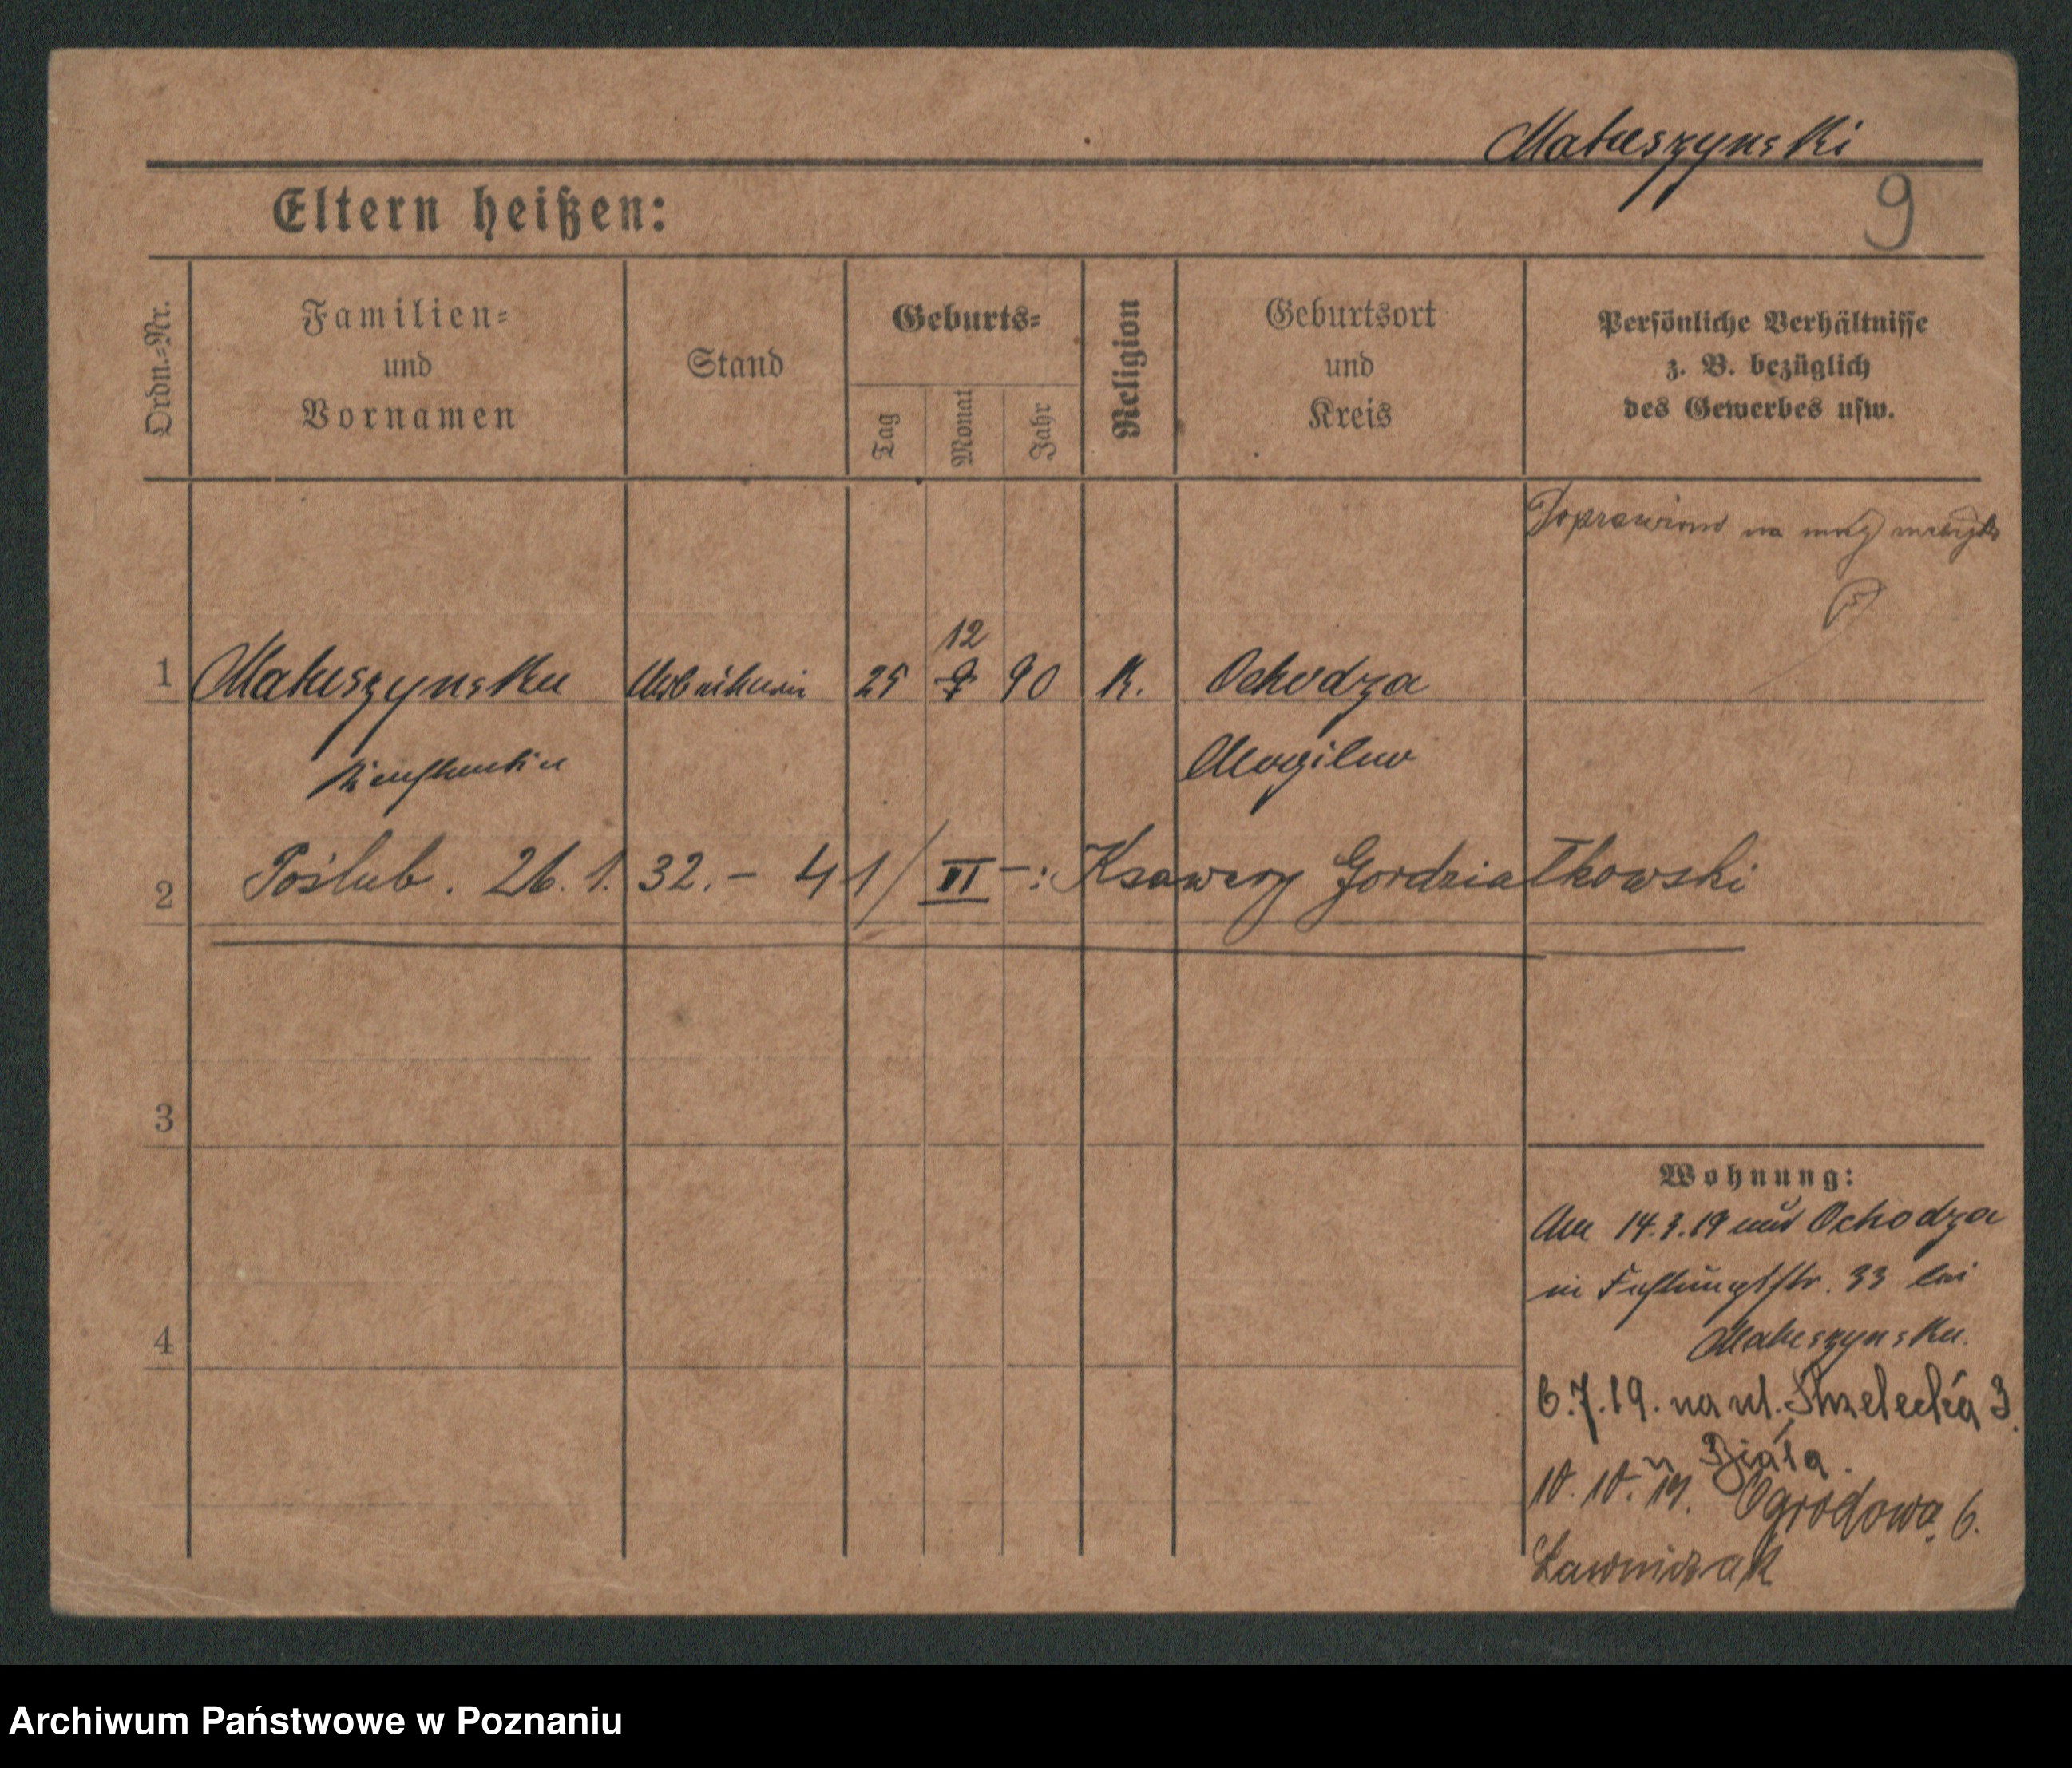 Mateeszynski
9
Eltern heißen:
Ordn.-Nr.
Familien-
und
Vornamen
Stand
Geburts-
Tag
Monat
Jahr
Religion
Geburtsort
und
Kreis
Persönliche Verhältnisse
z. B. bezüglich
des Gewerbes usw.
Poprawiono na
12
1 25 9 90 K. Ochodza
Mogilno
2 Poślub. 26. 1. 32. – 41/VI –: Ksawery Gordziałkowski
3
Wohnung:
Am 14.3.19 aus Ochodza
in Festungsstr. 33 bei
4
6.7.19. na ul. Strzelecka 3.
u Biała.
10. 10. 19. Ogrodowa 6.
Ławniczak
Archiwum Państwowe w Poznaniu